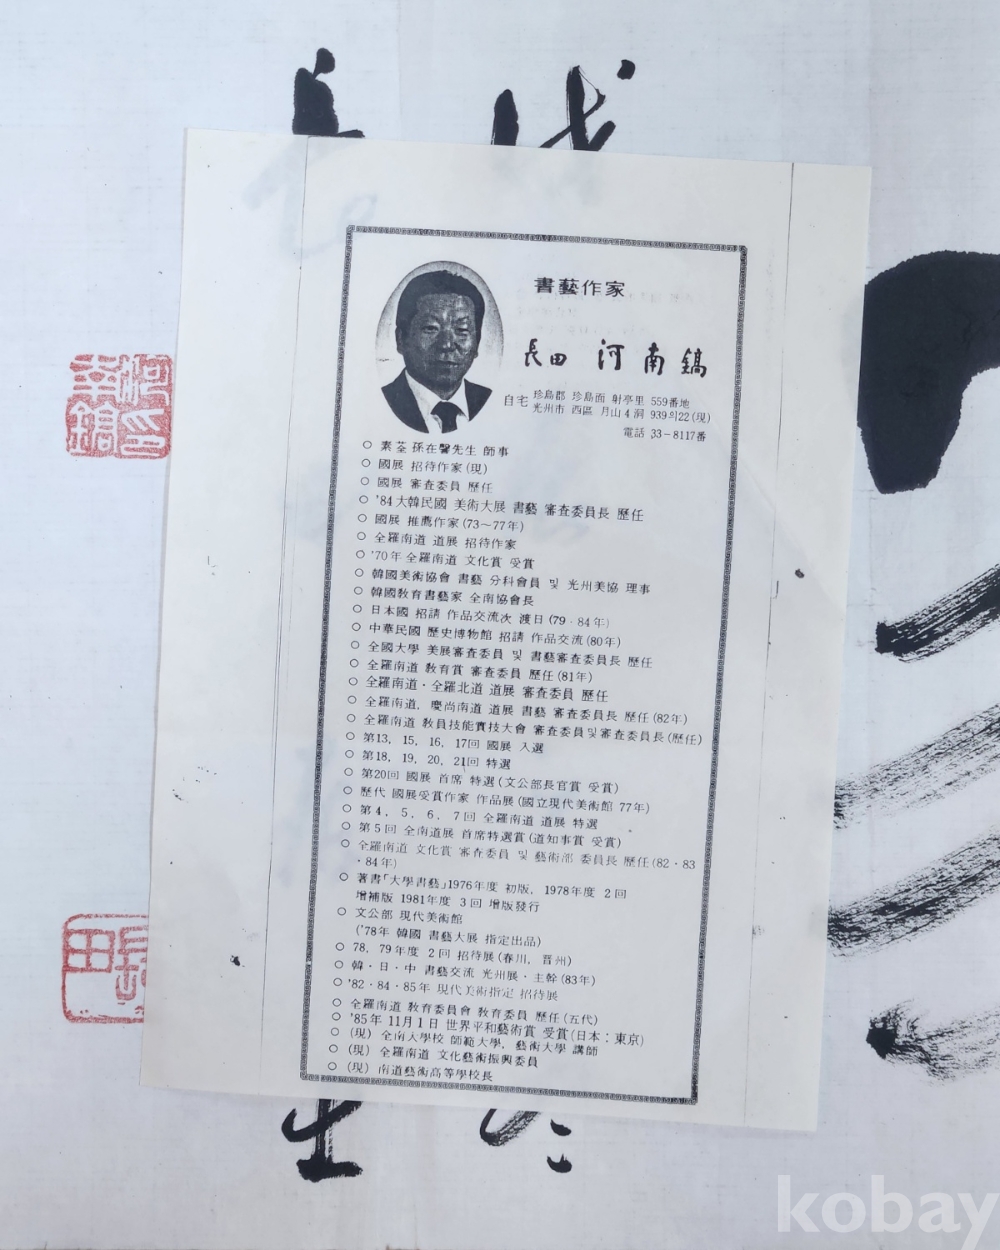 書藝作家
長田 河南鎬
自宅 珍島郡 珍島面 射亭里 559番地
光州市 西區 月山4洞 939의22(現)
電話 33-8117番
○ 素荃 孫在馨先生 師事
○ 國展 招待作家(現)
○ 國展 審査委員 歷任
○ '84大韓民國 美術大展 書藝 審査委員長 歷任
○ 國展 推薦作家(73~77年)
○ 全羅南道 道展 招待作家
○ '70年 全羅南道 文化賞 受賞
○ 韓國美術協會 書藝 分科會員 및 光州美協 理事
○ 韓國敎育書藝家 全南協會長
○ 日本國 招請 作品交流次 渡日(79·84年)
○ 中華民國 歷史博物館 招請 作品交流(80年)
○ 全國大學 美展審査委員 및 書藝審査委員長 歷任
○ 全羅南道 敎育賞 審査委員 歷任(81年)
○ 全羅南道·全羅北道 道展 審査委員 歷任
○ 全羅南道, 慶尚南道 道展 書藝 審査委員長 歷任(82年)
○ 全羅南道 敎員技能實技大會 審査委員및審査委員長(歷任)
○ 第13, 15, 16, 17回 國展 入選
○ 第18, 19, 20, 21回 特選
○ 第20回 國展 首席 特選(文公部長官賞 受賞)
○ 歷代 國展受賞作家 作品展(國立現代美術館 77年)
○ 第4, 5, 6, 7回 全羅南道 道展 特選
○ 第5回 全南道展 首席特選賞(道知事賞 受賞)
○ 全羅南道 文化賞 審査委員 및 藝術部 委員長 歷任(82·83
·84年)
○ 著書「大學書藝」1976年度 初版, 1978年度 2回
增補版 1981年度 3回 增版發行
○ 文公部 現代美術館
('78年 韓國 書藝大展 指定出品)
○ 78, 79年度 2回 招待展(春川, 晋州)
○ 韓·日·中 書藝交流 光州展·主幹(83年)
○ '82·84·85年 現代美術指定 招待展
○ 全羅南道 敎育委員會 敎育委員 歷任(五代)
○ '85年 11月1日 世界平和藝術賞 受賞(日本:東京)
○ (現) 全南大學校 師範大學, 藝術大學 講師
○ (現) 全羅南道 文化藝術振興委員
○ (現) 南道藝術高等學校長
kobay